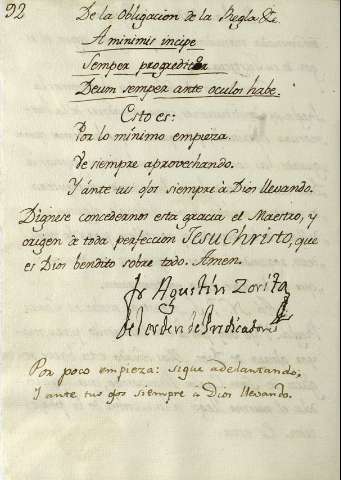 92
De la Obligacion de la Regla &c.
A minimis incipe
Semper progreditor
Deum semper ante oculos habe.
Esto es:
Por lo mínimo empieza.
Ve siempre aprovechando.
Y ánte tus ojos siempre à Dios llevando.
Dignese concedernos esta gracia el Maestro, y
origen de toda perfeccion Jesu Christo, que
es Dios bendito sobre todo. Amen.
Fr Agustin Zorita
del orden de Predicadores
Por poco empieza: sigue adelantando,
Y ante tus ojos siempre à Dios llevando.